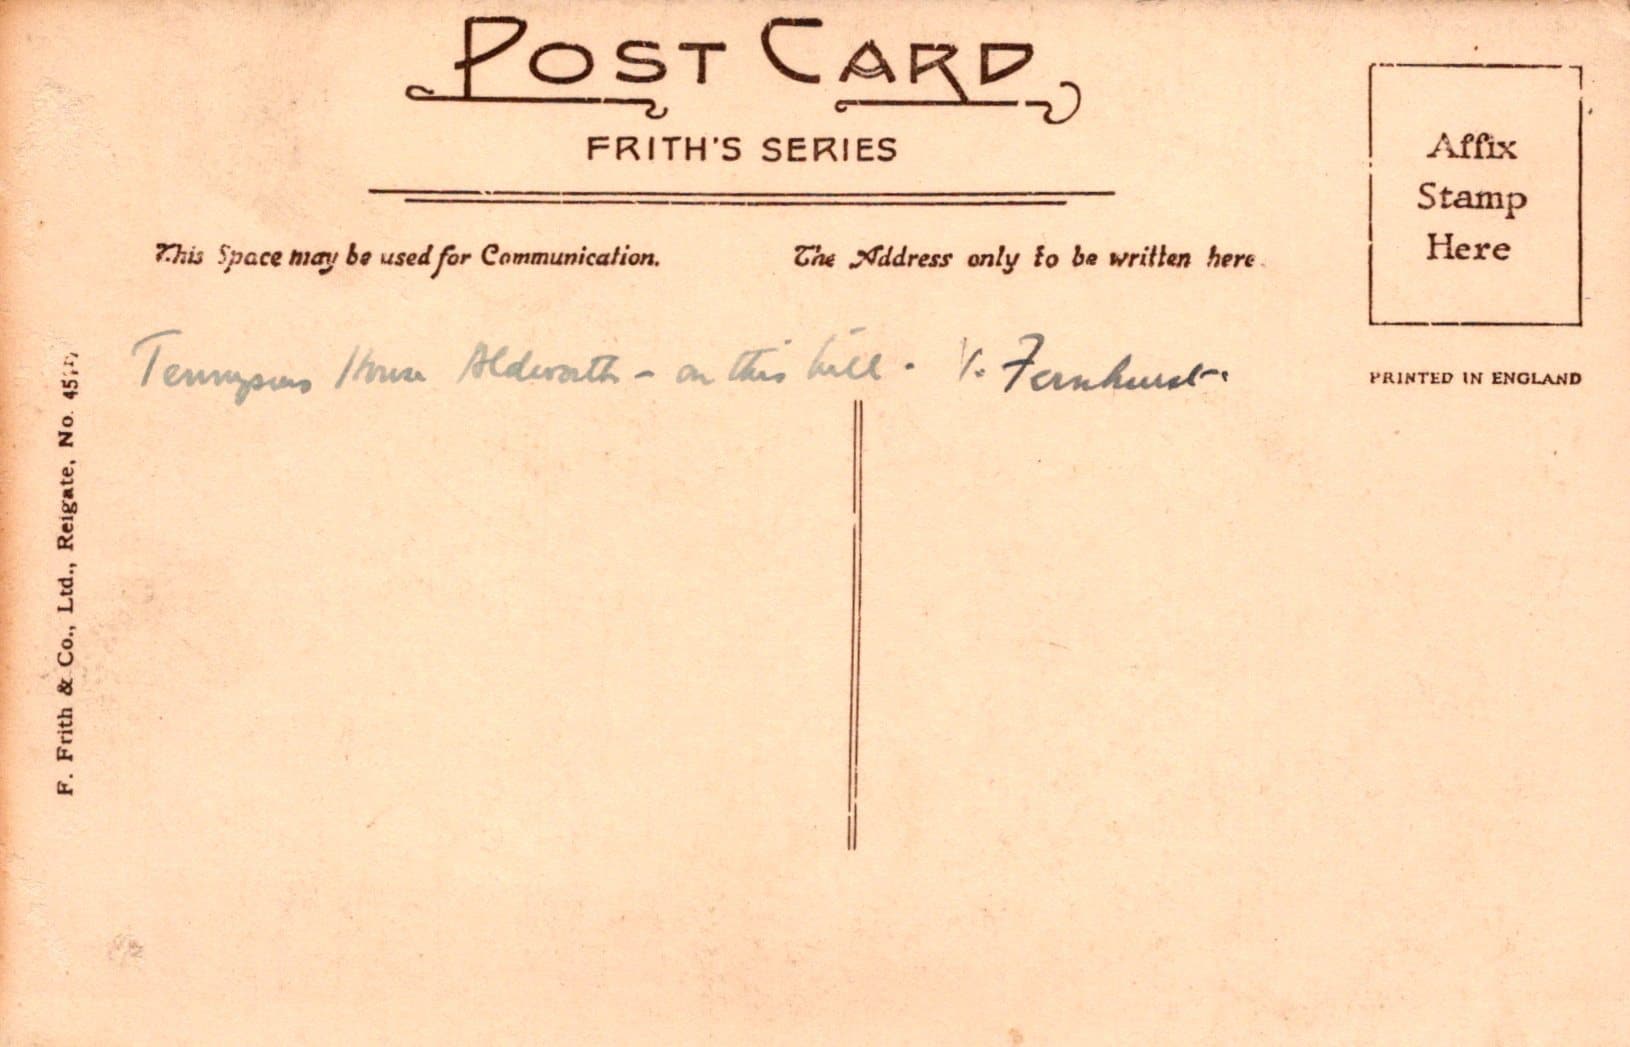 POST CARD
FRITH'S SERIES
This Space may be used for Communication.
The Address only to be written here.
Affix
Stamp
Here
PRINTED IN ENGLAND
Tennysons House Aldworth - on this hill. V. Fernhurst.
F. Frith & Co., Ltd., Reigate, No.